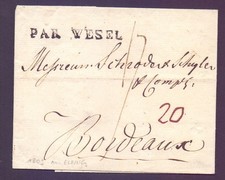 PAR WESEL
Messieurs Schroder & Schyler
& Comp.
20
Bordeaux